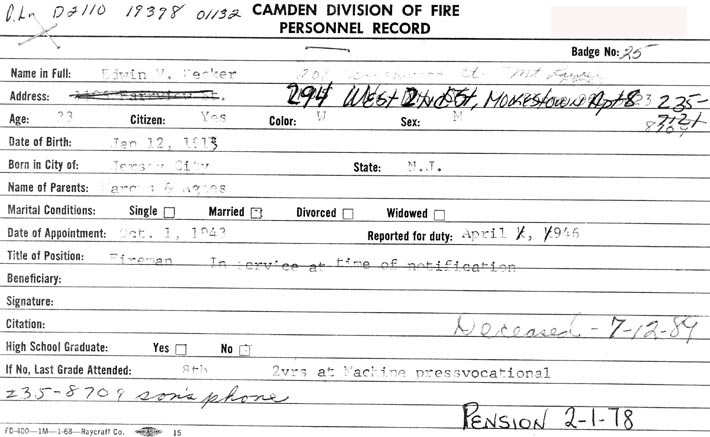 D2110 19378 01132 CAMDEN DIVISION OF FIRE
PERSONNEL RECORD
Badge No: 25
Name in Full: Edwin V. Becker Mt Laurel
Address: 294 West 2nd St, Moorestown Apt 8 235-
7121
8709
Age: 33 Citizen: Yes Color: W Sex: M
Date of Birth: Jan 12, 1913
Born in City of: Jersey City State: N.J.
Name of Parents: Marcus & Agnes
Marital Conditions: Single Married Divorced Widowed
Date of Appointment: Oct. 1, 1943 Reported for duty: April 1, 1946
Title of Position: Fireman In service at time of notification
Beneficiary:
Signature:
Citation: Deceased - 7-12-89
High School Graduate: Yes No
If No, Last Grade Attended: 8th 2yrs at Machine pressvocational
235-8709 son's phone
PENSION 2-1-78
FD-400—1M—1-68—Raycraft Co. 15